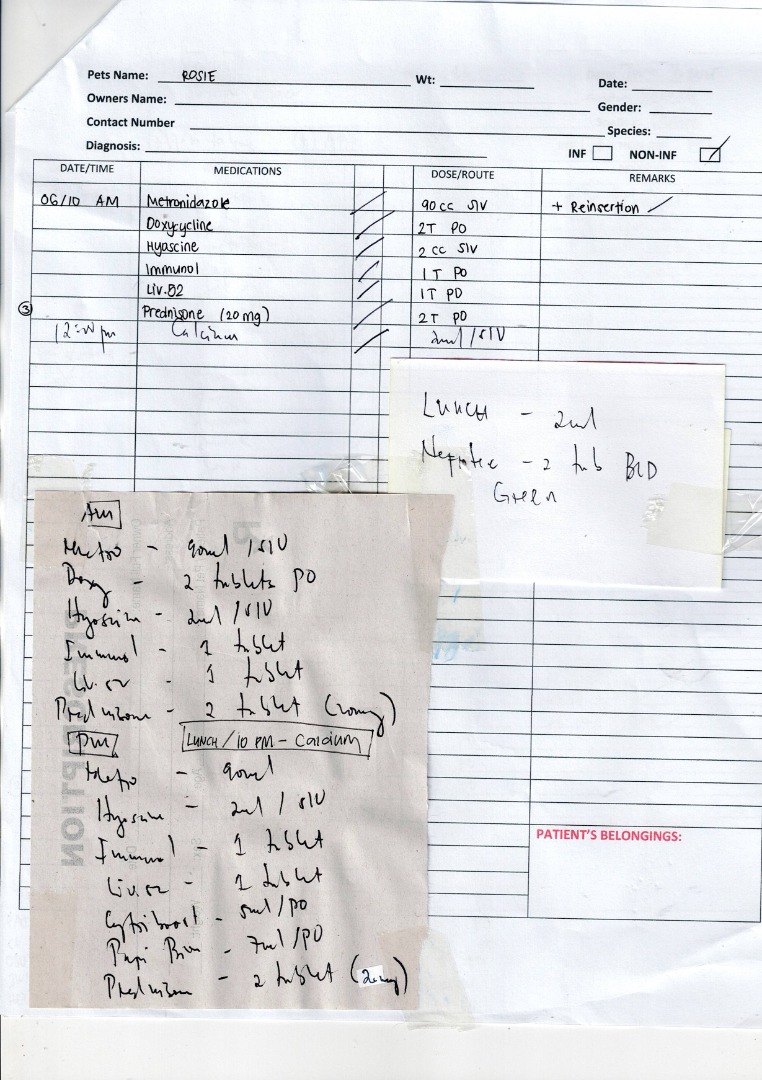 Pets Name: ROSIE Wt: Date:
Owners Name: Gender:
Contact Number Species:
Diagnosis: INF NON-INF
DATE/TIME MEDICATIONS DOSE/ROUTE REMARKS
06/10 AM Metronidazole 90 cc SIV + Reinsertion
Doxycycline 2T PO
Hyascine 2 cc SIV
Immunol 1T PO
Liv.52 1T PO
③ Prednisone (20 mg) 2T PO
12:00 pm Calcium 2ml / SIV
LUNCH - 2ml
- 2 tab BID
Green
Am
Metro - 90ml / SIV
Doxy - 2 tablets PO
Hyoscine - 2ml / SIV
Immunol - 1 tablet
Liv.52 - 1 tablet
Prednisone - 2 tablet (20mg)
Pm LUNCH / 10 PM - Calcium
Metro - 90ml
Hyoscine - 2ml / SIV
Immunol - 1 tablet
Liv.52 - 1 tablet
- 5ml / PO
- 7ml / PO
Prednisone - 2 tablet (20mg)
PATIENT'S BELONGINGS: